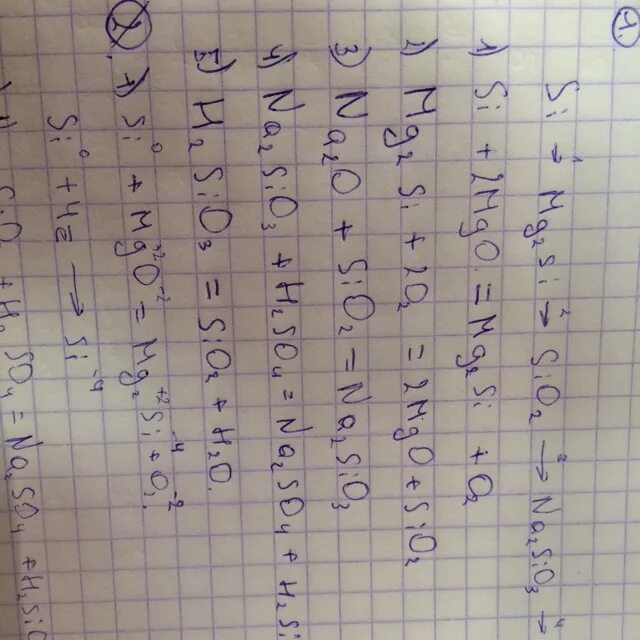 ①
Si →¹ Mg₂Si →² SiO₂ →³ Na₂SiO₃ →⁴
1) Si + 2MgO = Mg₂Si + O₂
1) Mg₂Si + 2O₂ = 2MgO + SiO₂
3) Na₂O + SiO₂ = Na₂SiO₃
4) Na₂SiO₃ + H₂SO₄ = Na₂SO₄ + H₂Si
5) H₂SiO₃ = SiO₂ + H₂O.
② 1) Si⁰ + Mg⁺²O⁻² = Mg₂⁺²Si⁻⁴ + O₂⁻²
Si⁰ + 4ē → Si⁻⁴
SO₄ = Na₂SO₄ + H₂SiO